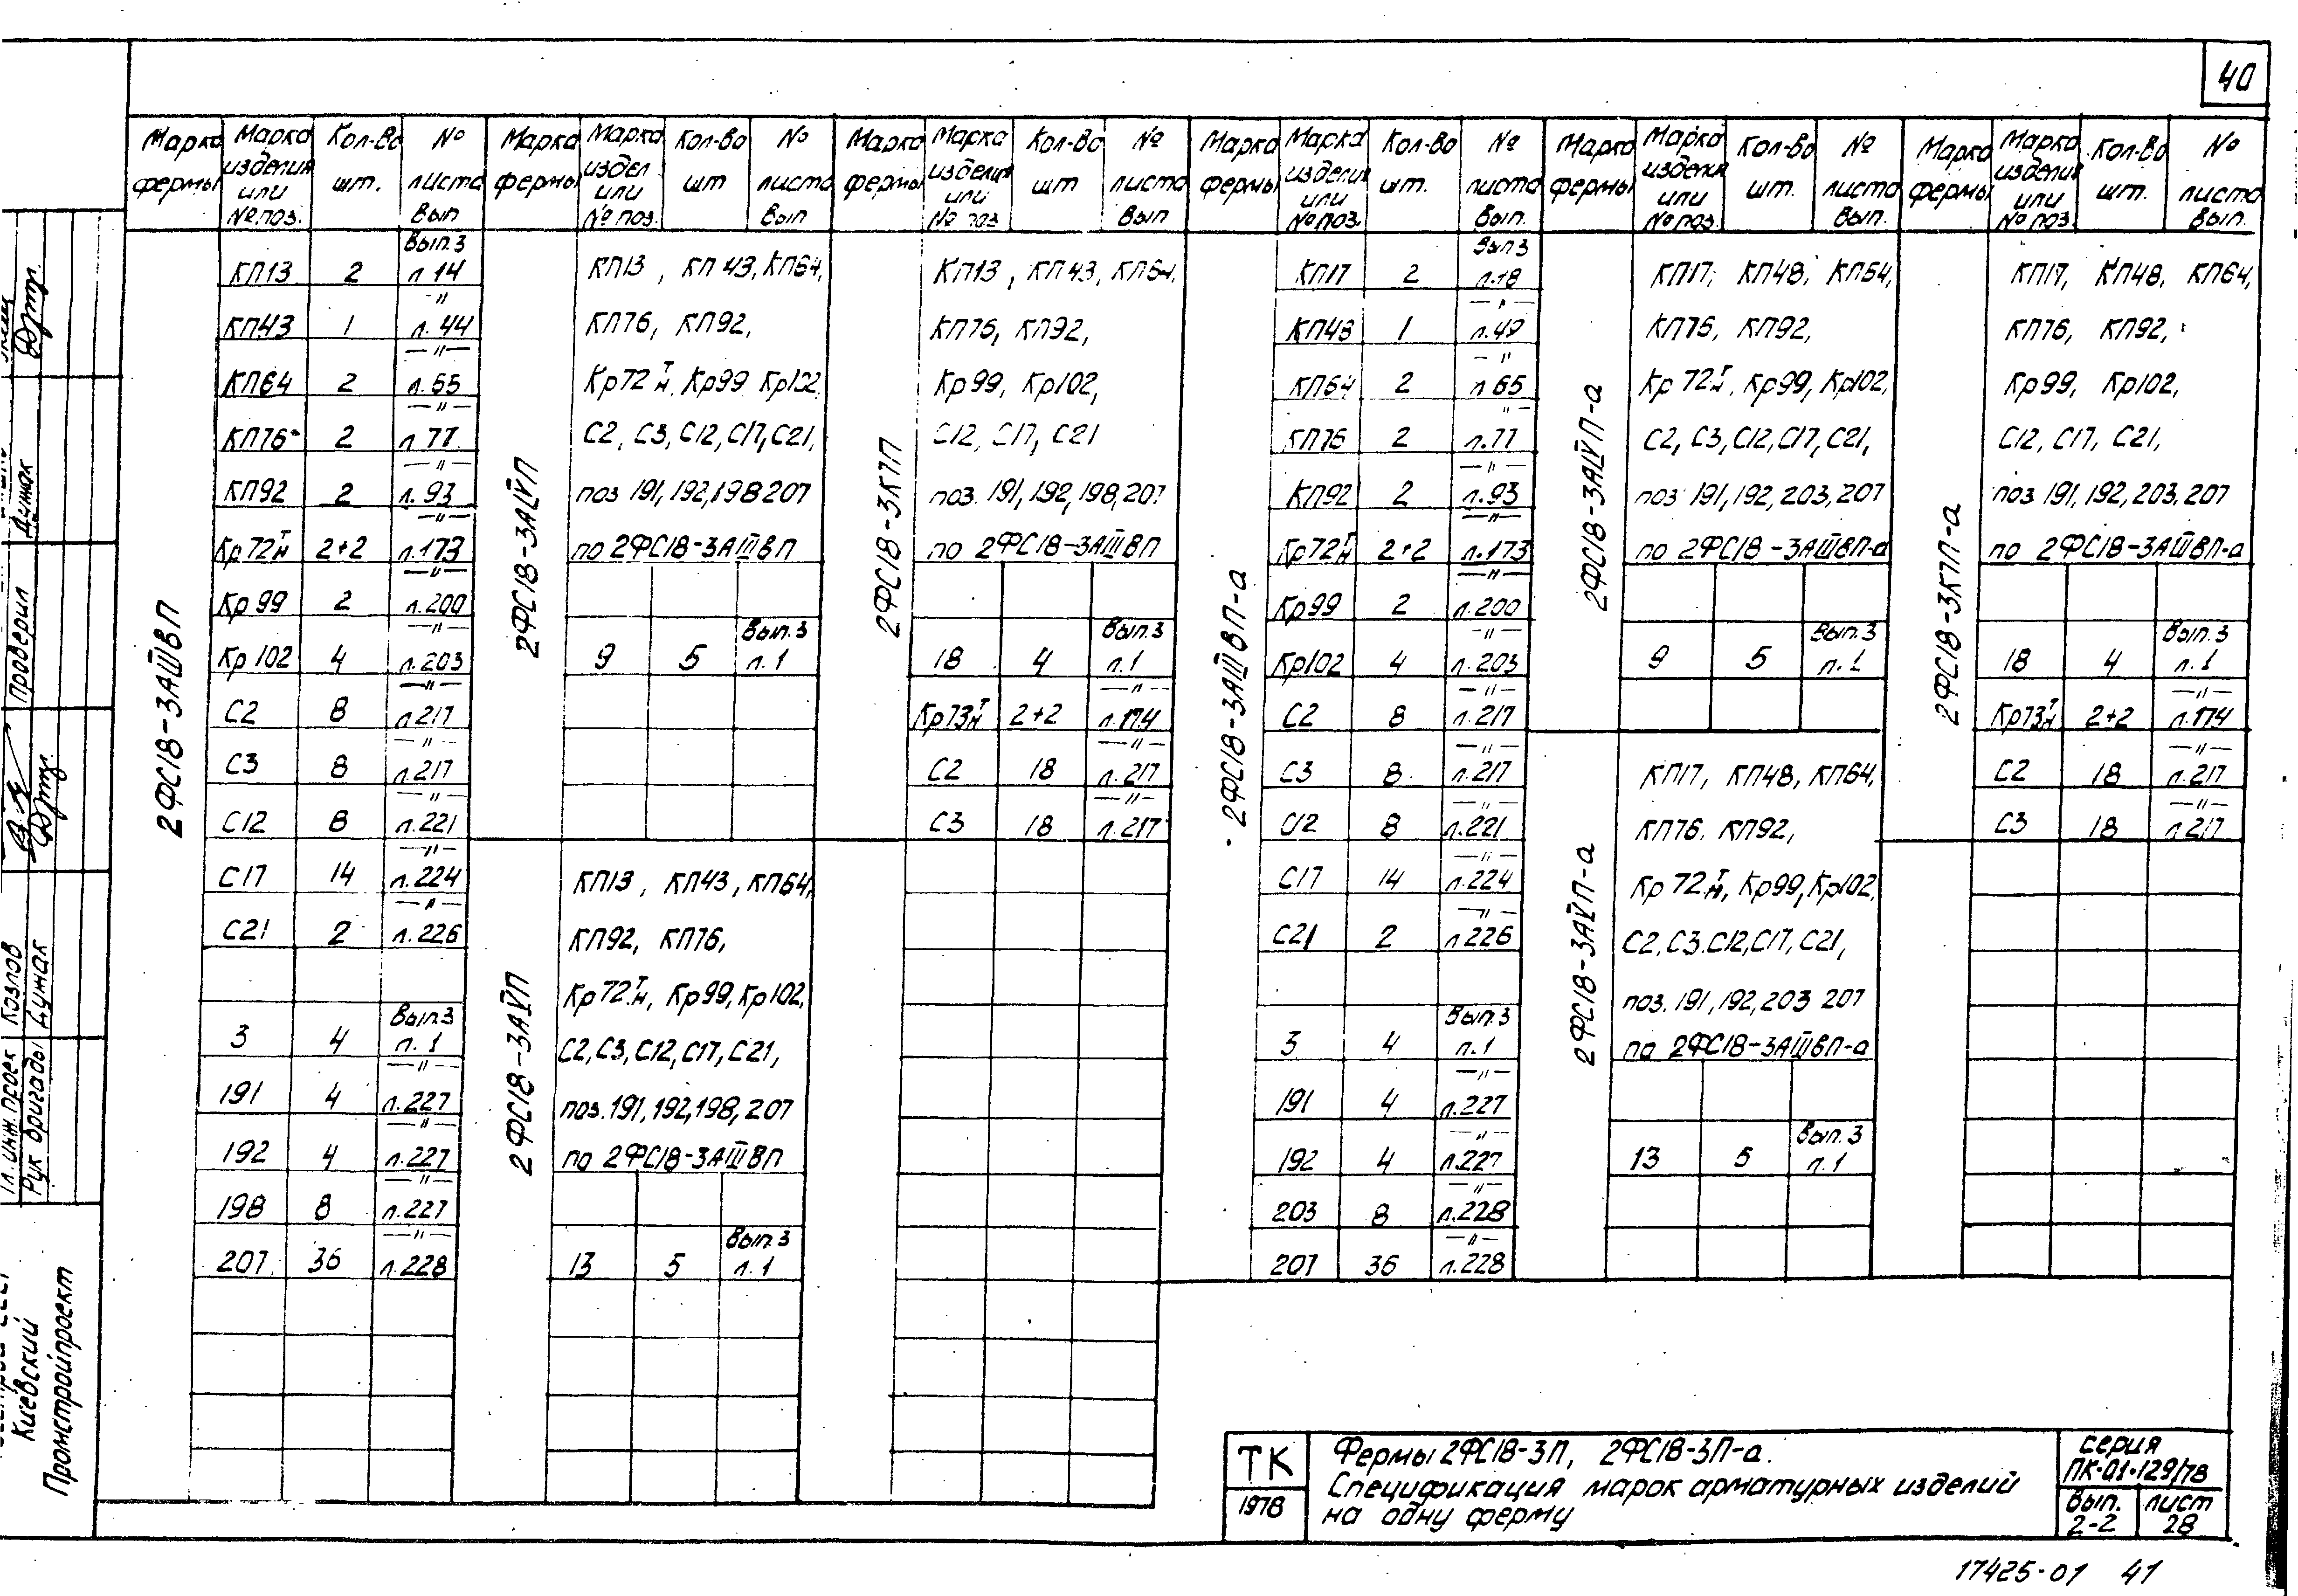 40
Марка фермы | Марка изделия или № поз. | Кол-во шт. | № листа Вып | Марка фермы | Марка издел или № поз. | Кол-во шт | № листа Вып | Марка фермы | Марка изделия или № поз | Кол-во шт | № листа Вып | Марка фермы | Марка изделия или № поз. | Кол-во шт. | № листа Вып. | Марка фермы | Марка изделия или № поз. | Кол-во шт. | № листа Вып. | Марка фермы | Марка изделия или № поз. | Кол-во шт. | № листа Вып.
2ФС18-3АШВП
КП13 2 Вып.3 л.14
КП43 1 —"— л.44
КП64 2 —"— л.65
КП76 2 —"— л.77
КП92 2 —"— л.93
Кр72т/н 2+2 —"— л.173
Кр99 2 —"— л.200
Кр102 4 —"— л.203
С2 8 —"— л.217
С3 8 —"— л.217
С12 8 —"— л.221
С17 14 —"— л.224
С21 2 —"— л.226
3 4 Вып.3 л.1
191 4 —"— л.227
192 4 —"— л.227
198 8 —"— л.227
207 36 —"— л.228
2ФС18-3АIVП
КП13, КП43, КП64,
КП76, КП92,
Кр72т/н, Кр99 Кр102
С2, С3, С12, С17, С21,
поз 191, 192, 198 207
по 2ФС18-3АШВП
9 5 Вып.3 л.1
2ФС18-3АVП
КП13, КП43, КП64,
КП92, КП76,
Кр72т/н, Кр99, Кр102,
С2, С3, С12, С17, С21,
поз. 191, 192, 198, 207
по 2ФС18-3АШВП
13 5 Вып.3 л.1
2ФС18-3К7П
КП13, КП43, КП64,
КП76, КП92,
Кр99, Кр102,
С12, С17, С21
поз. 191, 192, 198, 207
по 2ФС18-3АШВП
18 4 Вып.3 л.1
Кр73т/н 2+2 —"— л.174
С2 18 —"— л.217
С3 18 —"— л.217
2ФС18-3АШВП-а
КП17 2 Вып3 л.18
КП48 1 —"— л.49
КП64 2 —"— л.65
КП76 2 —"— л.77
КП92 2 —"— л.93
Кр72т/н 2+2 —"— л.173
Кр99 2 —"— л.200
Кр102 4 —"— л.203
С2 8 —"— л.217
С3 8 —"— л.217
С12 8 —"— л.221
С17 14 —"— л.224
С21 2 —"— л.226
3 4 Вып.3 л.1
191 4 —"— л.227
192 4 —"— л.227
203 8 —"— л.228
207 36 —"— л.228
2ФС18-3АIVП-а
КП17, КП48, КП64,
КП76, КП92,
Кр72т/н, Кр99, Кр102,
С2, С3, С12, С17, С21,
поз 191, 192, 203, 207
по 2ФС18-3АШВП-а
9 5 Вып.3 л.1
2ФС18-3АVП-а
КП17, КП48, КП64,
КП76, КП92,
Кр72т/н, Кр99, Кр102,
С2, С3, С12, С17, С21,
поз. 191, 192, 203 207
по 2ФС18-3АШВП-а
13 5 Вып.3 л.1
2ФС18-3К7П-а
КП17, КП48, КП64,
КП76, КП92,
Кр99, Кр102,
С12, С17, С21,
поз 191, 192, 203, 207
по 2ФС18-3АШВП-а
18 4 Вып.3 л.1
Кр73т/н 2+2 —"— л.174
С2 18 —"— л.217
С3 18 —"— л.217
проверил
Гл. инж. проек Козлов
Рук бригады
Киевский
Промстройпроект
ТК
1978
Фермы 2ФС18-3П, 2ФС18-3П-а.
Спецификация марок арматурных изделий
на одну ферму
серия
ПК-01-129/78
Вып. 2-2
лист 28
17425-01 41